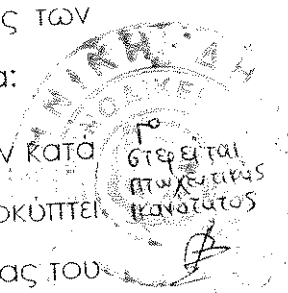 ς των
α:
ν κατά
οκύπτει
ας του
το
στερείται
πτωχευτικής
ικανότητος